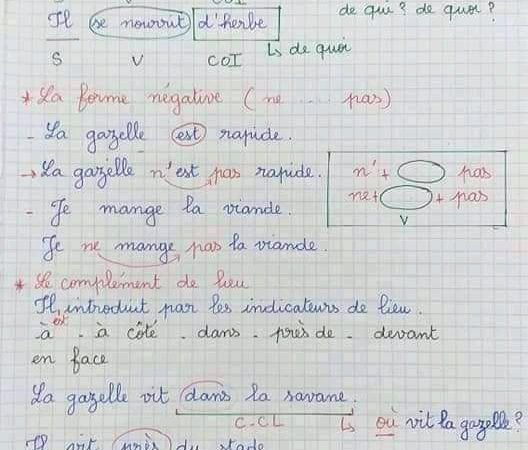 de qui ? de quoi ?
Il se nourrit d'herbe
↳ de quoi
S V COI
* La forme négative ( ne ..... pas)
- La gazelle est rapide.
→ La gazelle n'est pas rapide.
n'+ pas
- Je mange la viande.
ne+ + pas
V
Je ne mange pas la viande.
* Le complément de lieu
Il, introduit par les indicateurs de lieu.
est
à - à côté - dans - près de - devant
en face
La gazelle vit dans la savane.
C.CL ↳ où vit la gazelle ?
Il vit près du stade